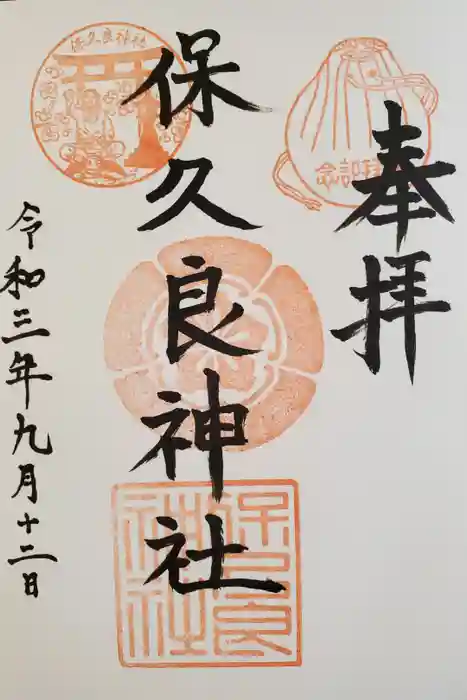 奉拝
参拝記念
保久良神社
保久良神社
保久良神社
令和三年九月十二日